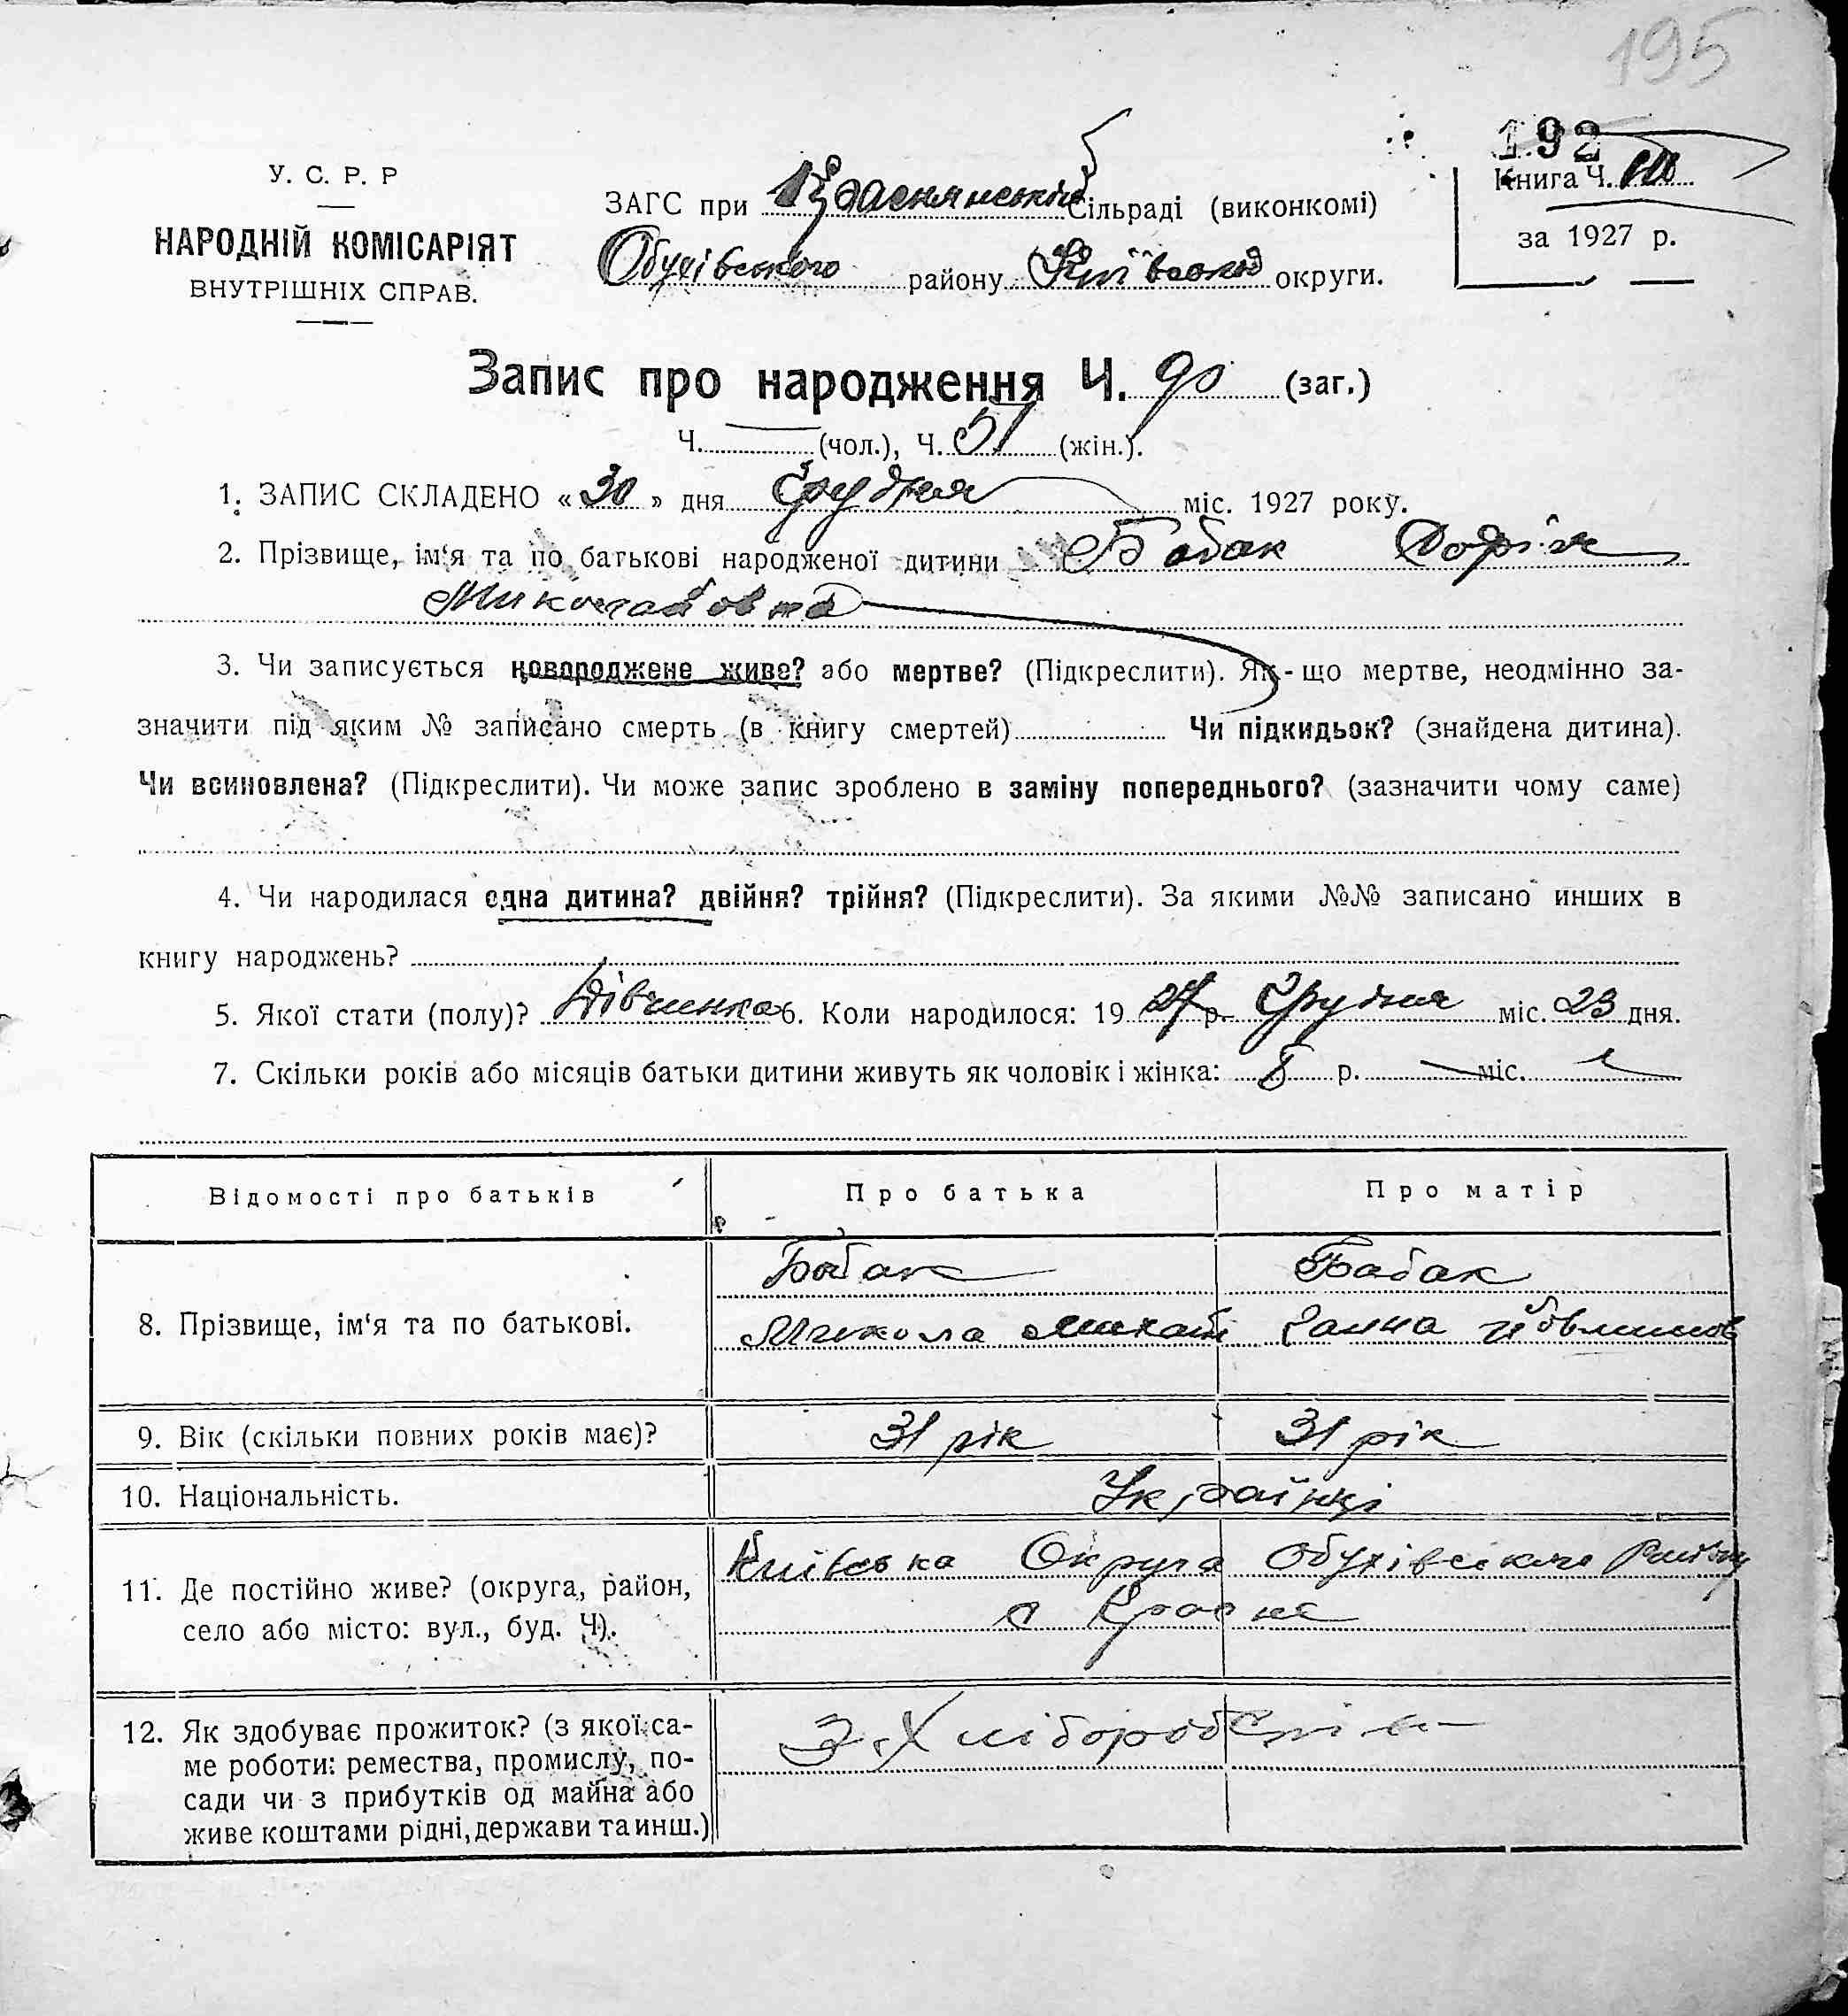 195
192
У. С. Р. Р
НАРОДНІЙ КОМІСАРІЯТ
ВНУТРІШНІХ СПРАВ.
ЗАГС при Краснянській Сільраді (виконкомі)
Обухівського району Київської округи.
Книга Ч.
за 1927 р.
Запис про народження Ч. 90 (заг.)
Ч. — (чол.), Ч. 51 (жін.).
1. ЗАПИС СКЛАДЕНО « 30 » дня Грудня міс. 1927 року.
2. Прізвище, ім‘я та по батькові народженої дитини Бабак Софія
Миколаївна
3. Чи записується новороджене живе? або мертве? (Підкреслити). Як-що мертве, неодмінно за-
значити під яким № записано смерть (в книгу смертей) Чи підкидьок? (знайдена дитина).
Чи всиновлена? (Підкреслити). Чи може запис зроблено в заміну попереднього? (зазначити чому саме)
4. Чи народилася одна дитина? двійня? трійня? (Підкреслити). За якими №№ записано инших в
книгу народжень?
5. Якої стати (полу)? Дівчинка 6. Коли народилося: 19 27 р. Грудня міс. 23 дня.
7. Скільки років або місяців батьки дитини живуть як чоловік і жінка: 8 р. — міс.
Відомості про батьків Про батька Про матір
8. Прізвище, ім‘я та по батькові. Бабак Бабак
Микола Михай Ганна
9. Вік (скільки повних років має)? 31 рік 31 рік
10. Національність. Українці
11. Де постійно живе? (округа, район, Київська Округа Обухівського Району
село або місто: вул., буд. Ч). с Красне
12. Як здобуває прожиток? (з якої са- З Хліборобства
ме роботи: ремества, промислу, по-
сади чи з прибутків од майна або
живе коштами рідні, держави та инш.)